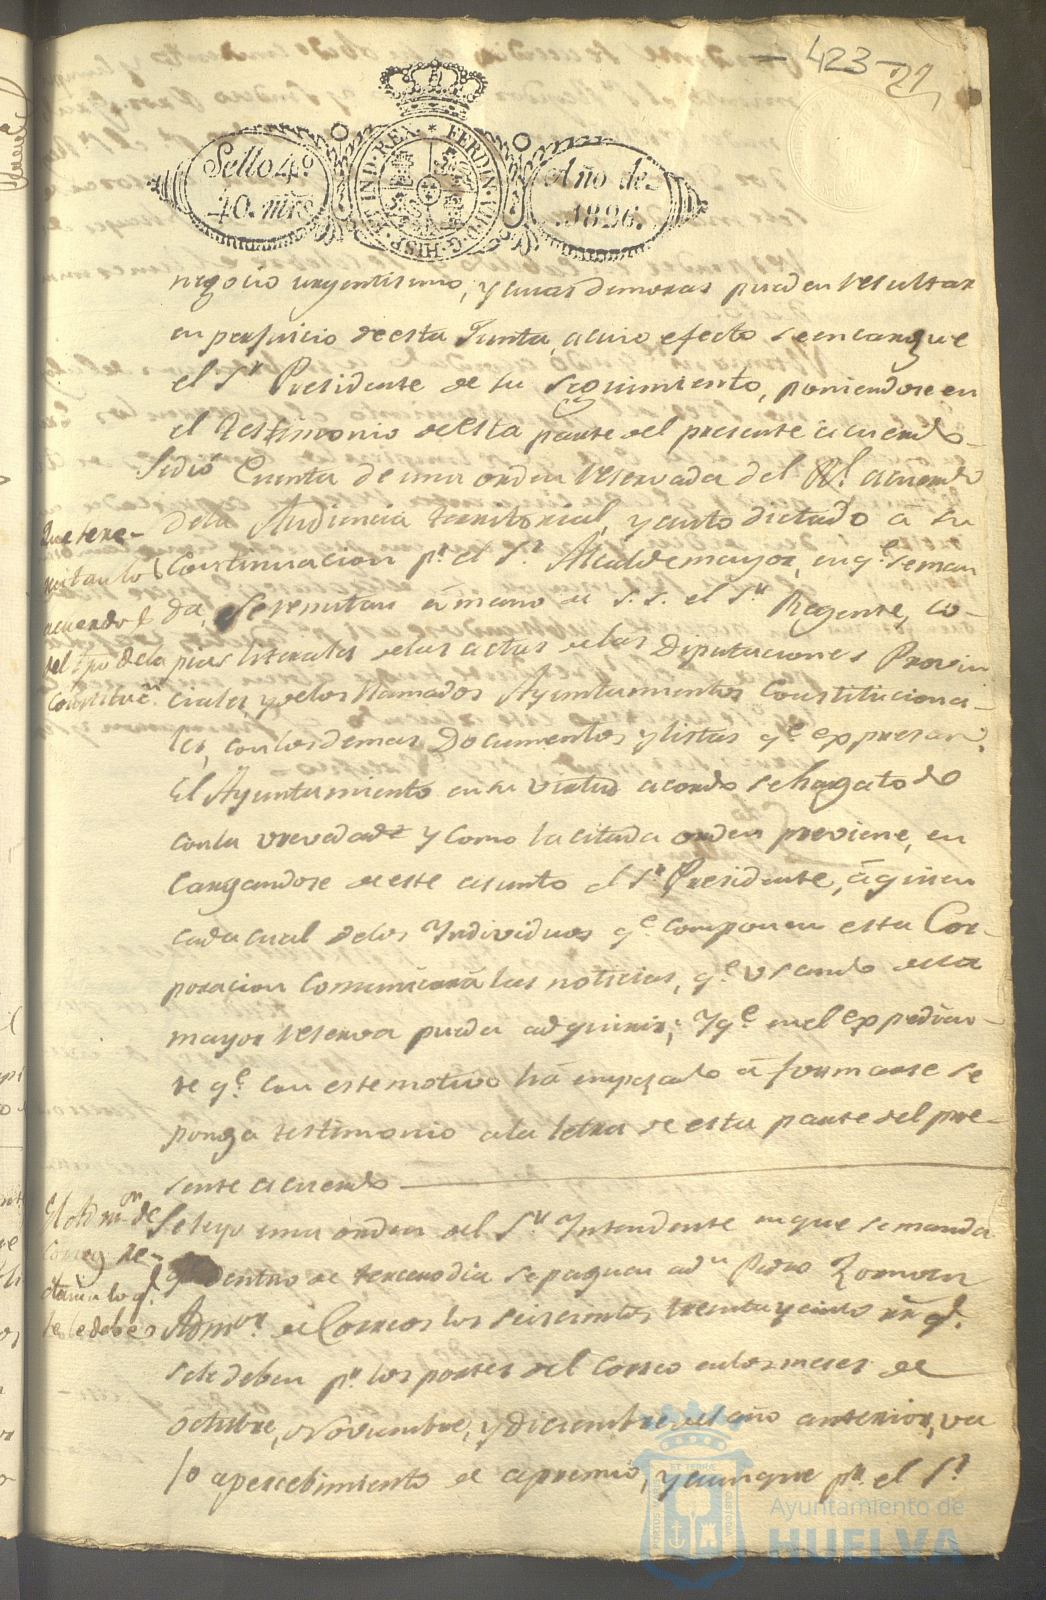 423
Sello 4º
40. mrs
HISP. ET IND. REX. * FERDIN. VII. D. G.
Año de
1826.
negocio urgentisimo, y cuias demoras pueden resultar
en perjuicio de esta Junta, a cuio efecto se encargue
el Sr. Presidente de su seguimiento, poniendose en
el testimonio de esta parte del presente acuerdo
Se dió Cuenta de una orden reservada del Rl. acuerdo
dela Audiencia territorial, y auto dictado á su
Continuacion pr. el Sr. Alcalde mayor, en qe. se man
da, se remitan á mano de S. S. el Sr. Regente, co-
pias literales delas actas delas Diputaciones Provin
ciales, y delos llamados Ayuntamientos Constituciona-
les, con los demas Documentos y listas qe. expresan.
El Ayuntamiento en su virtud acordo se haga todo
con la brevedad y como la citada orden previene, en
cargandose de este asunto el Sr. Presidente, á quien
cada cual delos Individuos qe. componen esta Cor-
poracion comunicará las noticias, qe. usando dela
mayor reserva pueda adquirir; Y qe. en el expedien-
te qe. con este motivo há empezado á formarse se
ponga testimonio ala letra de esta parte del pre-
sente acuerdo
Que se re-
mitan los
acuerdos
del tpo dela
Constitucn.
Se leyo una orden del Sr. Intendente en que se manda
qe. dentro de tercero dia se paguen a Dn. Pedro Roman
Admor. de Correos los seiscientos treinta y cinco rs. qe.
se le deben pr. los portes del Correo enlos meses de
Octubre, Noviembre, y Diciembre del año anterior, va
jo apercebimiento de apremio, y aunque pr. el Sr.
El Admon. de
Correos re-
clama lo qe.
se le debe
Ayuntamiento de
HUELVA